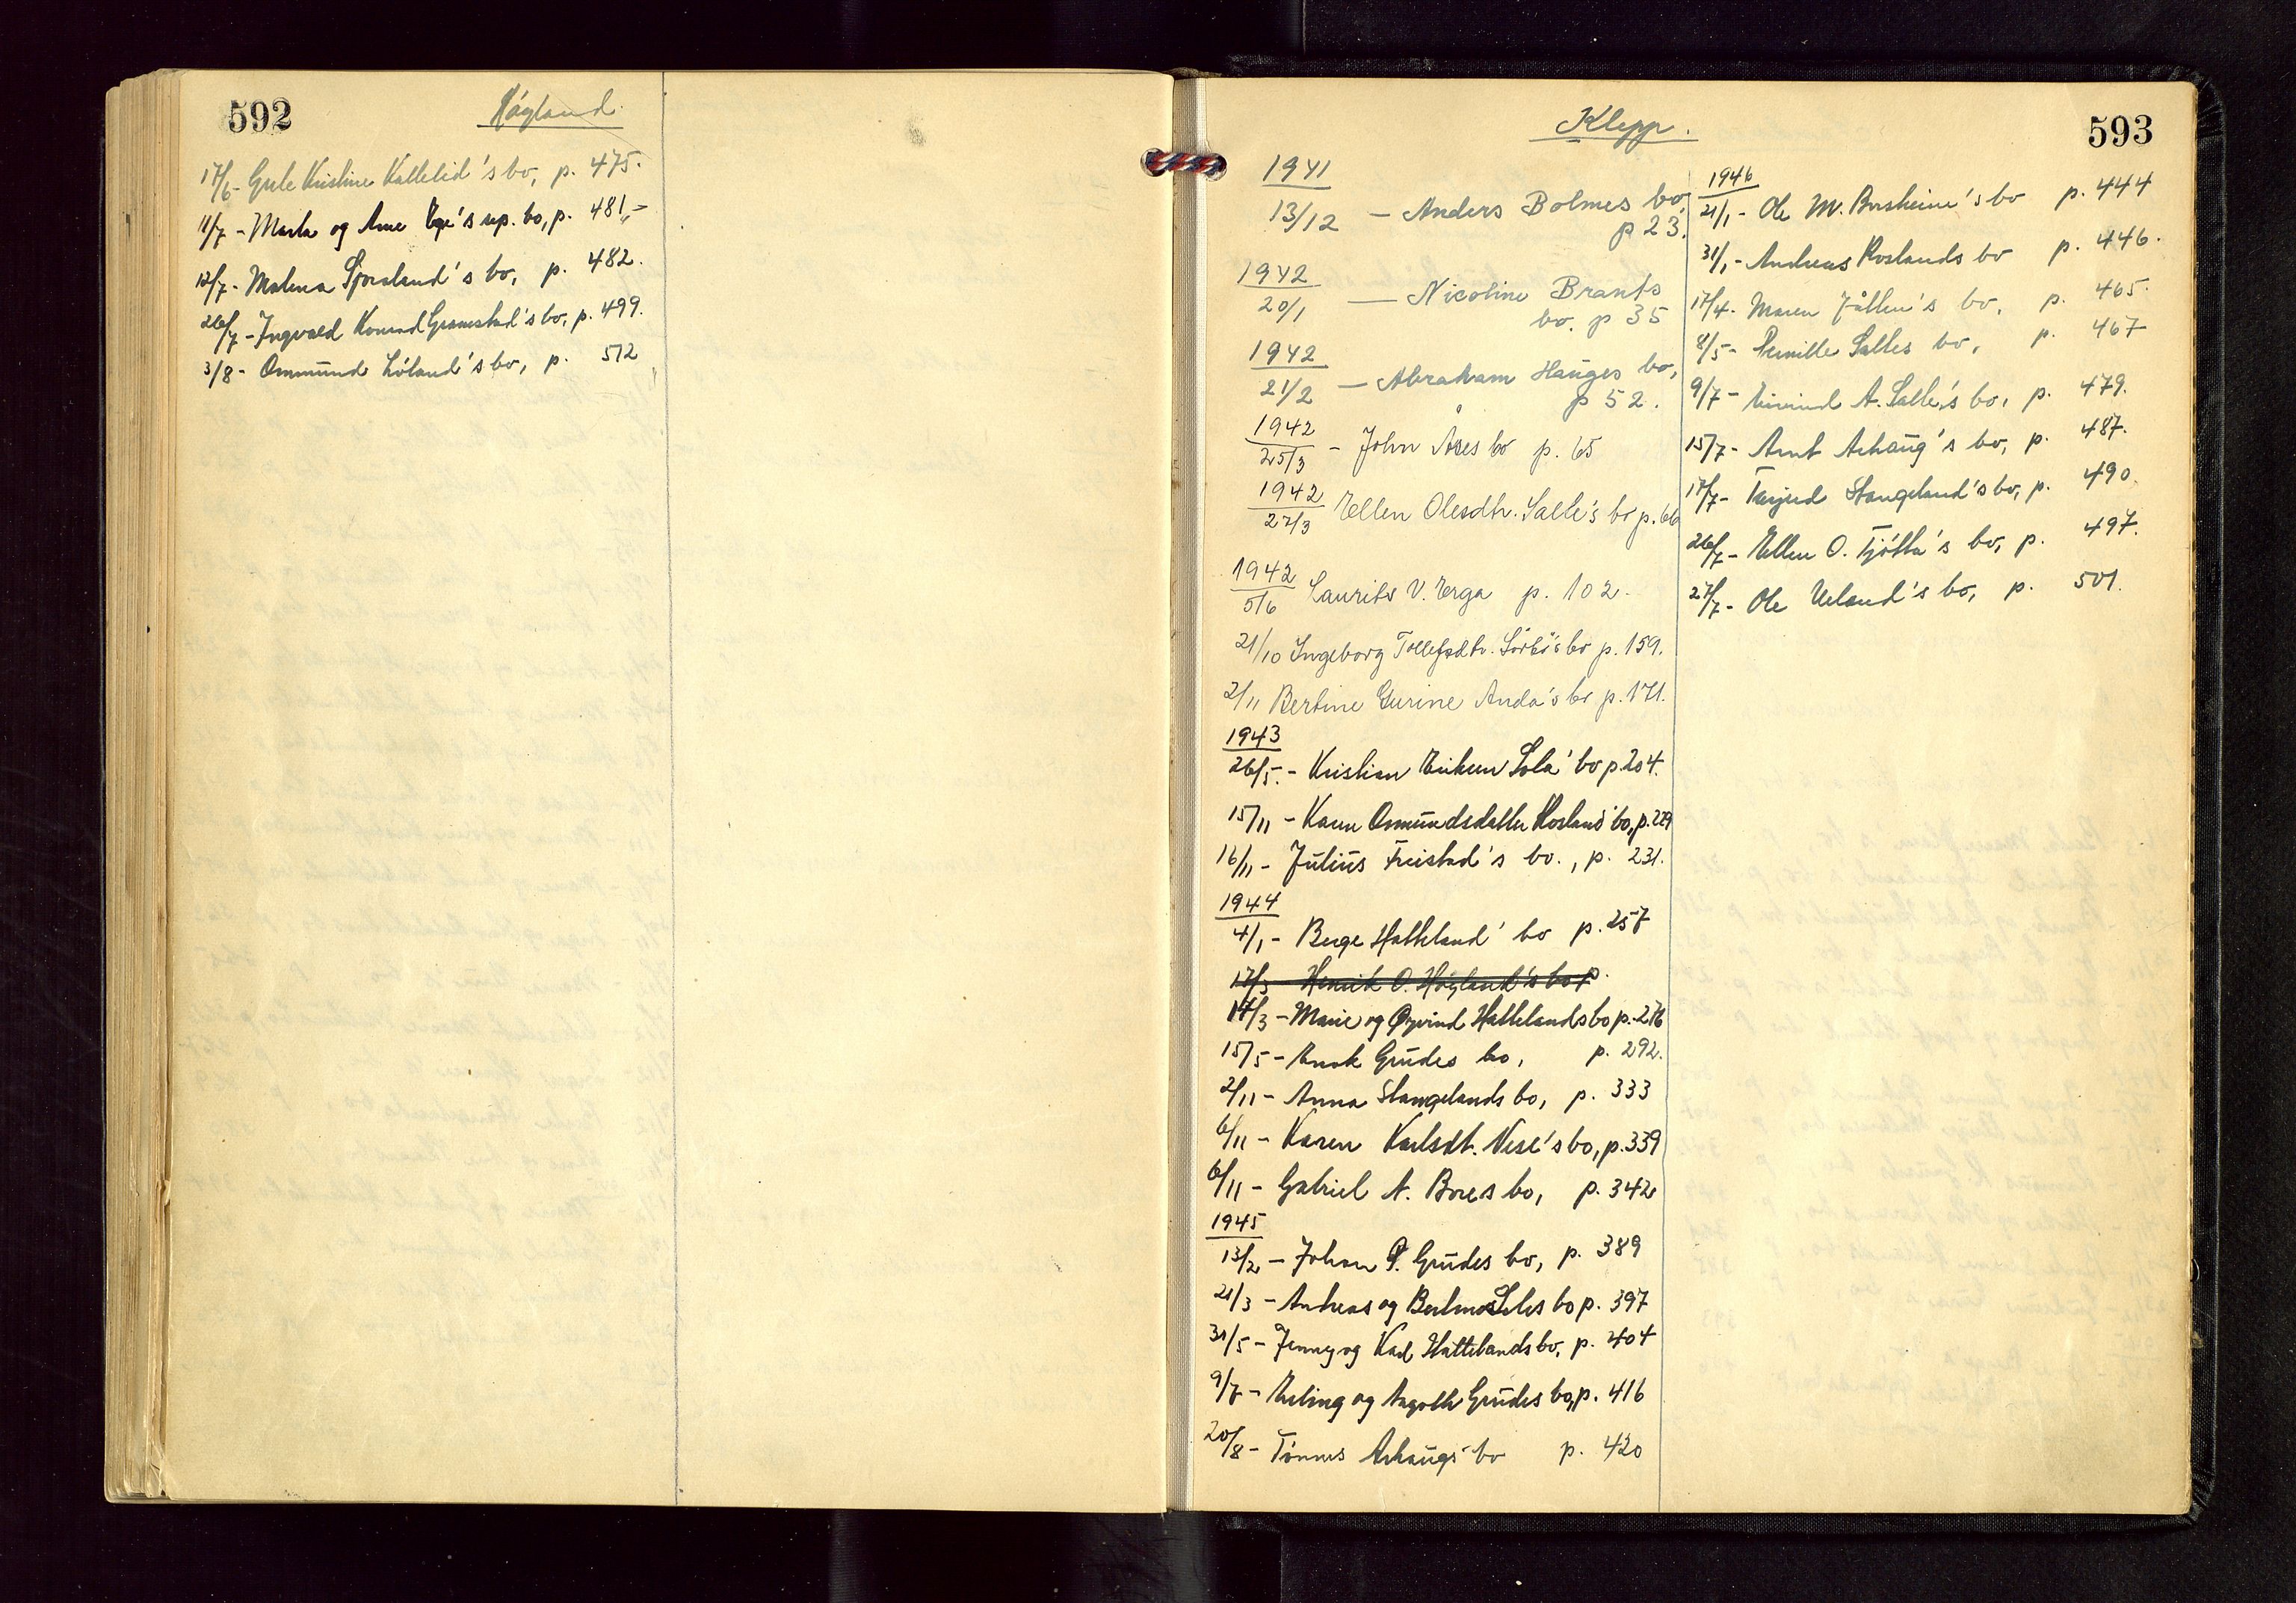 592
Høyland.
17/6 - Gule Kristine Kallelid's bo, p. 475.
11/7 - Marta og Arne Ege's sep. bo, p. 481,-
12/7 - Malena Sporaland's bo, p. 482.
26/7 - Ingvald Konrad Gramstad's bo, p. 499.
3/8 - Ommund Lóland's bo, p. 512
Klepp.
593
1941
13/12 - Anders Bolmes bo,
p 23.
1942
20/1 - Nicoline Brants
bo. p 35
1942
21/2 - Abraham Hauges bo,
p 52.
1942
25/3 - John Åses bo p. 65
1942
27/3 Ellen Olesdtr. Salte's bo p. 66
1942
5/6 Laurits V. Erga p. 102.
21/10 Ingeborg Tollefsdtr. Sörbö's bo p. 159.
2/11 Bertine Gurine Anda's bo p. 171.
1943
26/5. - Kristian Eriksen Sola' bo p 204.
15/11 - Karen Osmundsdatter Rosland' bo, p. 229
16/11 - Julius Freistad's bo., p. 231.
1944
4/1 - Berge Hatteland' bo p. 257
17/3 - Henrik O. Høyland's bo p.
14/3 - Marie og Øyvind Hattelands bo p. 276
15/5 - Enok Grudes bo, p. 292.
2/11 - Anna Stangelands bo, p. 333
6/11 - Karen Karlsdt. Nese's bo, p. 339
6/11 - Gabriel A. Bores bo, p. 342
1945
13/2 - Johan P. Grudes bo, p. 389
21/3 - Andreas og Seles bo p. 397
31/5 - Jenny og Karl Hattelands bo, p. 404
9/7 - Erling og Ingolk Grudes bo, p. 416
20/8 - Tönnes Arhaugs' bo p. 420
1946
21/1 - Ole M. Borsheim's bo p. 444
31/1 - Andreas Roslands bo p. 446.
17/4 - Maren Jåtten's bo, p. 465.
8/5 - Pernille Saltes bo, p. 467
9/7 - Eivind A. Salte's bo, p. 479.
15/7 - Arnt Arhaug's bo, p. 487.
17/7 - Tarjed Stangeland's bo, p. 490.
26/7 - Ellen O. Tjótta's bo, p. 497.
27/7 - Ole Ueland's bo, p. 501.